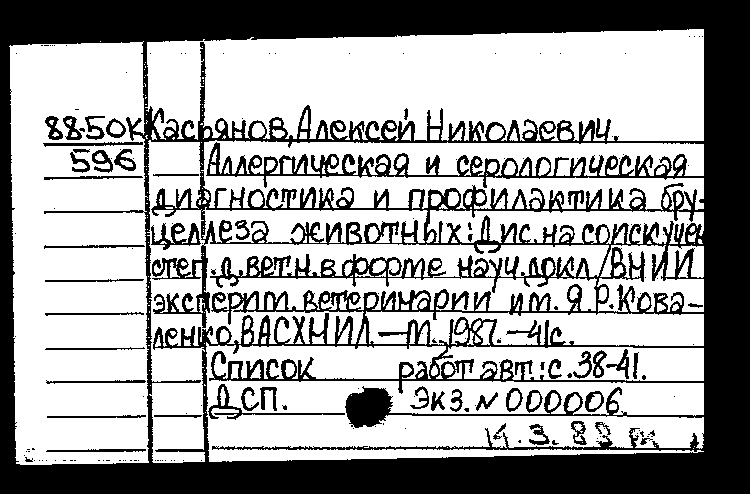 88-50К Касьянов, Алексей Николаевич.
596 Аллергическая и серологическая
диагностика и профилактика бру-
целлеза животных: Дис. на соиск. учен
степ. д. вет. н. в форме науч. докл. / ВНИИ
эксперим. ветеринарии им. Я. Р. Кова-
ленко, ВАСХНИЛ. — М., 1987. — 41с.
Список работ авт.: с. 38-41.
ДСП. Экз. N 000006.
14. 3. 88